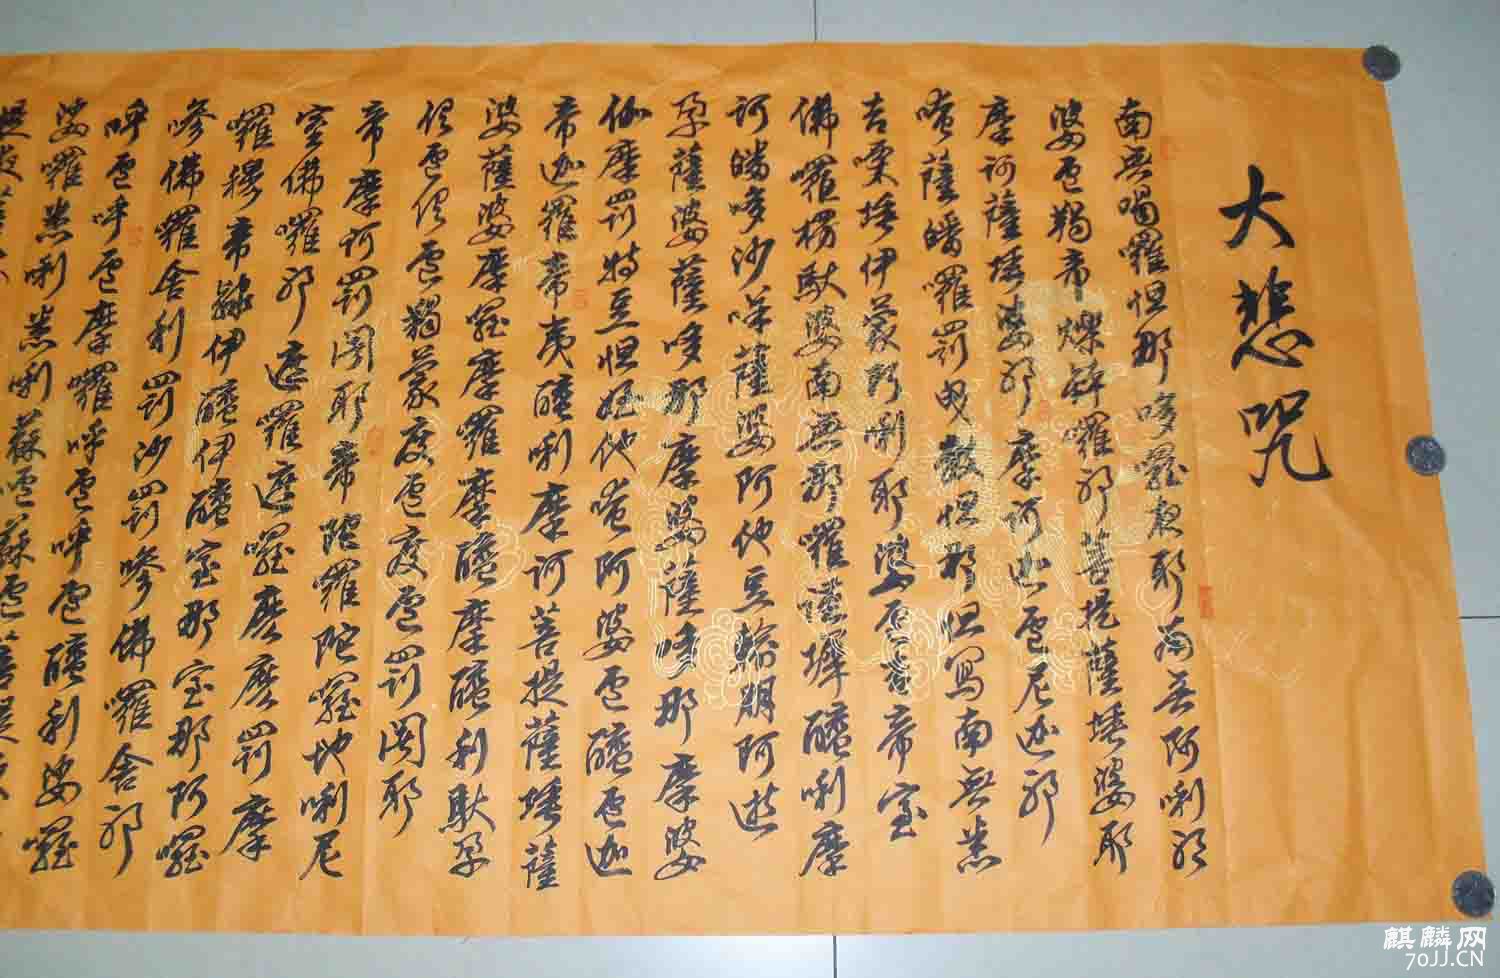 大悲咒
南無喝囉怛那哆囉夜耶南無阿唎耶
婆盧羯帝爍缽囉耶菩提薩埵婆耶
摩訶薩埵婆耶摩訶迦盧尼迦耶
唵薩皤囉罰曳數怛那怛寫南無悉
吉栗埵伊蒙阿唎耶婆盧吉帝室
佛囉楞馱婆南無那囉謹墀醯唎摩
訶皤哆沙咩薩婆阿他豆輸朋阿逝
孕薩婆薩哆那摩婆薩哆那摩婆
伽摩罰特豆怛姪他唵阿婆盧醯盧迦
帝迦羅帝夷醯唎摩訶菩提薩埵薩
婆薩婆摩囉摩囉摩醯摩醯利馱孕
俱盧俱盧羯蒙度盧度盧罰闍耶
帝摩訶罰闍耶帝陀囉陀囉地唎尼
室佛囉耶遮囉遮囉麼麼罰摩
囉穆帝隸伊醯伊醯室那室那阿囉
嘇佛囉舍利罰沙罰嘇佛囉舍耶
呼盧呼盧摩囉呼盧呼盧醯利娑囉
娑囉悉唎悉唎蘇嚧蘇嚧菩提
麒麟网
70JJ.CN